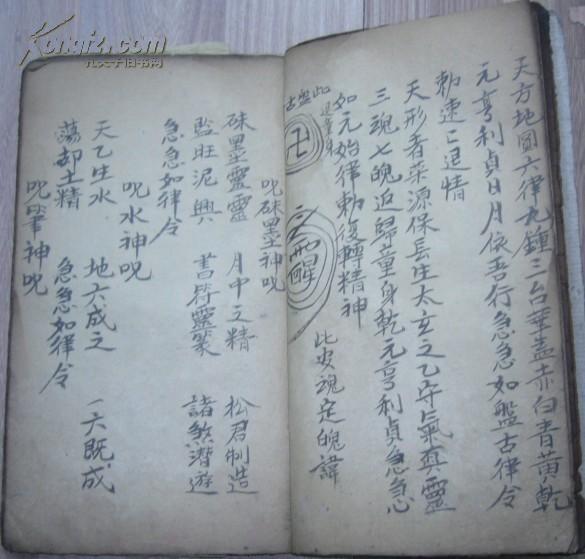 天方地圓六律九鍾三台華蓋赤白青黃乾
元亨利貞日月依吾行急急如盤古律令
勅速亡退情
天形者采源保長生太玄之乙守氣真靈
三魂七魄返歸童身乾元亨利貞急急
如元始律勅復轉精神
此安魂定魄諱
此盤古
卍
醒
呪硃墨神呪
硃墨靈靈 月中之精 松君制造
監旺泥興 書符靈篆 諸煞潛遊
急急如律令
呪水神呪
天乙生水 地六成之 一六既成
蕩却土精 急急如律令
呪筆神呪
Kongfz.com
孔夫子旧书网